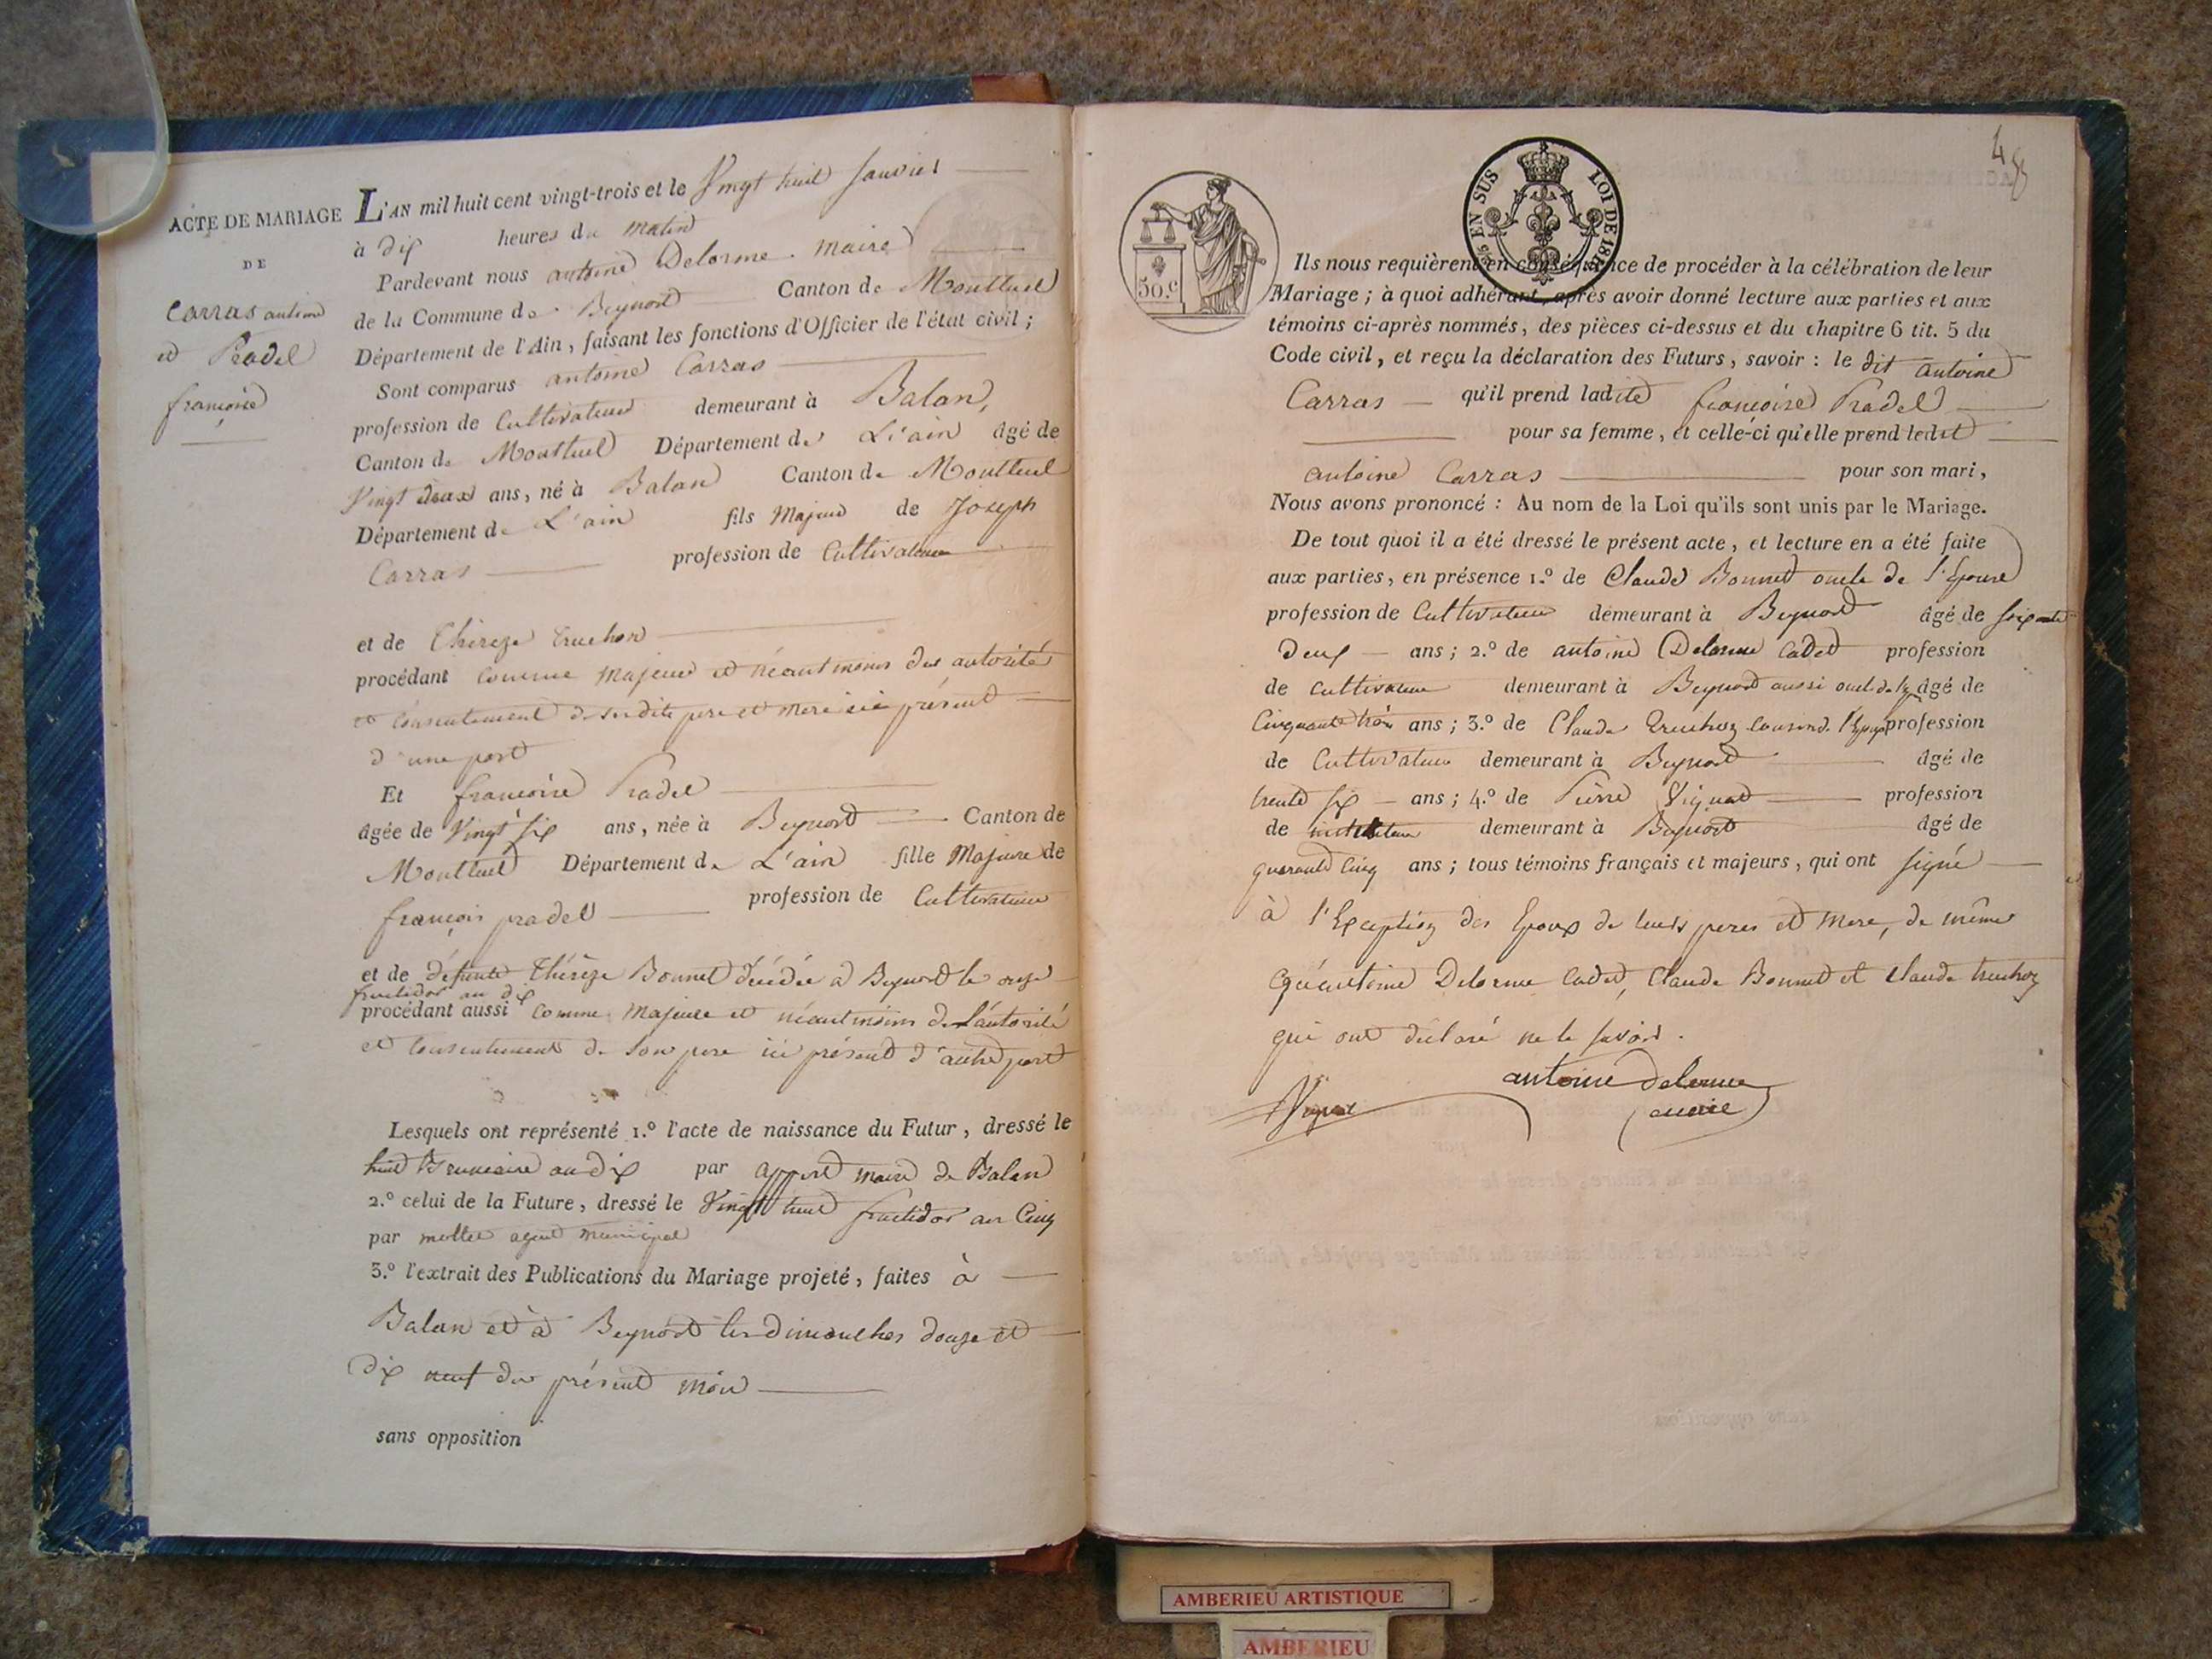 ACTE DE MARIAGE
DE
Carras antoine
et Pradel
françoise
L'AN mil huit cent vingt-trois et le Vingt huit Janvier
à dix heures du matin
Pardevant nous antoine Delorme maire
de la Commune de Beynost Canton de Montluel
Département de l'Ain, faisant les fonctions d'Officier de l'état civil;
Sont comparus antoine Carras
profession de Cultivateur demeurant à Balan,
Canton de Montluel Département de L'ain âgé de
Vingt deux ans, né à Balan Canton de Montluel
Département de L'ain fils Majeur de Joseph
Carras profession de Cultivateur
et de Théreze Truchon
procédant comme Majeur et néantmoins des autorité
et consentement de sesdits pere et mere ici présent
d'une part
Et françoise Pradel
âgée de Vingt six ans, née à Beynost Canton de
Montluel Département de L'ain fille Majeure de
françois pradel profession de Cultivateur
et de défunte Thérèze Bonnet décédée a Beynost le onze
fructidor an dix
procédant aussi comme Majeure et néantmoins de l'autorité
et consentement de son pere ici présent d'autre part
Lesquels ont représenté 1.º l'acte de naissance du Futur, dressé le
huit Brumaire an dix par maire de Balan
2.º celui de la Future, dressé le Vingt huit fructidor an Cinq
par mollet agent municipal
3.º l'extrait des Publications du Mariage projeté, faites à
Balan et à Beynost les Dimanches douze et
dix neuf du présent mois
sans opposition
4
8
50.c
EN SUS
LOI DE 181
Ils nous requièrent en conséquence de procéder à la célébration de leur
Mariage; à quoi adhérant, après avoir donné lecture aux parties et aux
témoins ci-après nommés, des pièces ci-dessus et du chapitre 6 tit. 5 du
Code civil, et reçu la déclaration des Futurs, savoir: le dit antoine
Carras qu'il prend ladite françoise Pradel
pour sa femme, et celle-ci qu'elle prend ledit
antoine Carras pour son mari,
Nous avons prononcé: Au nom de la Loi qu'ils sont unis par le Mariage.
De tout quoi il a été dressé le présent acte, et lecture en a été faite
aux parties, en présence 1.º de Claude Bonnet oncle de l'Epouse
profession de Cultivateur demeurant à Beynost âgé de soixante
deux ans; 2.º de antoine Delorme cadet profession
de cultivateur demeurant à Beynost aussi oncle de âgé de
Cinquante trois ans; 3.º de Claude Truchoz cousin de l'Epoux profession
de Cultivateur demeurant à Beynost âgé de
trente six ans; 4.º de Pierre Vignat profession
de instituteur demeurant à Beynost âgé de
quarante cinq ans; tous témoins français et majeurs, qui ont signé
à l'Exception des Epoux de leurs peres et mere, de même
qu'antoine Delorme cadet, Claude Bonnet et Claude truchoz
qui ont déclaré ne le savoir.
antoine Delorme
maire
AMBERIEU ARTISTIQUE
AMBERIEU